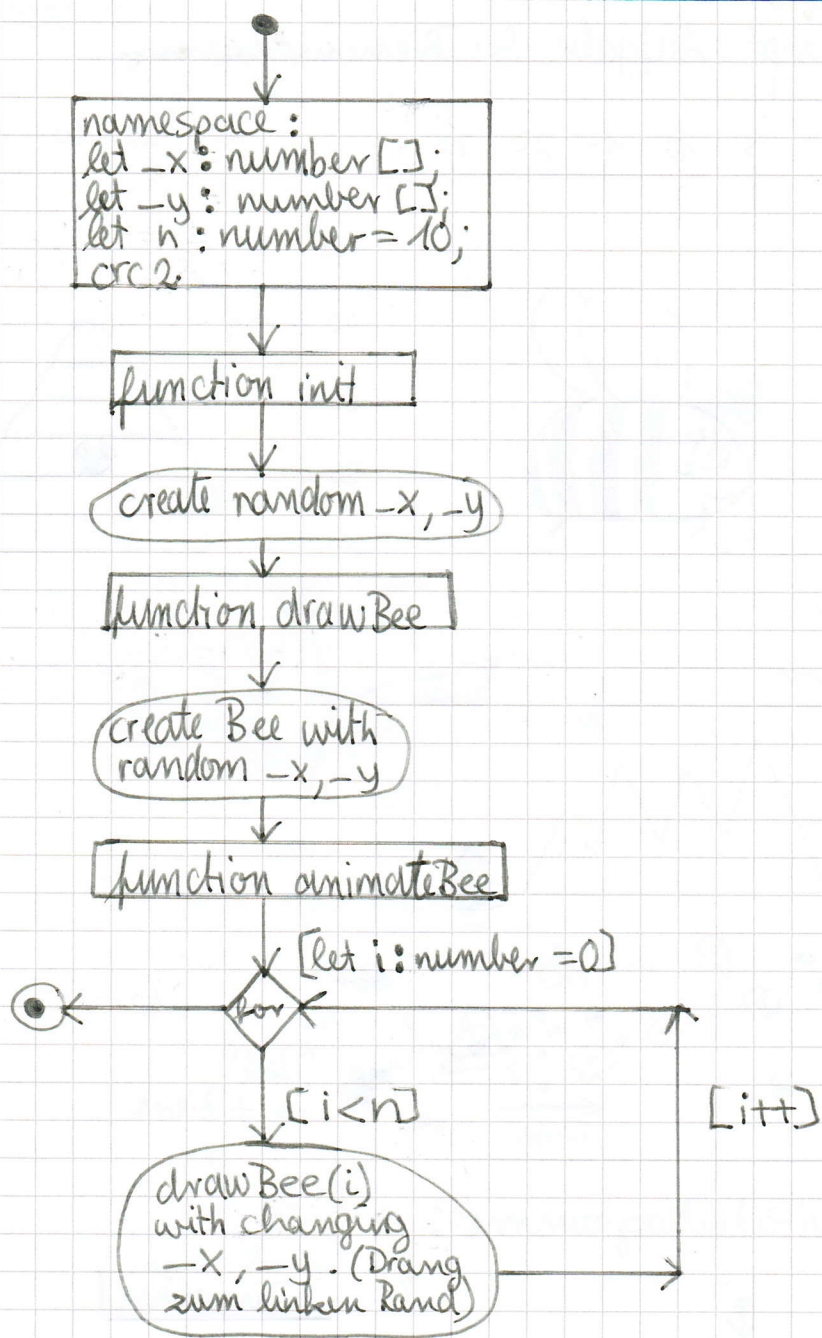 namespace:
let _x: number[];
let _y: number[];
let n: number = 10;
crc2
function init
create random _x, _y
function drawBee
create Bee with
random _x, _y
function animateBee
[let i: number = 0]
for
[i<n]
[i++]
drawBee(i)
with changing
_x, _y. (Drang
zum linken Rand)